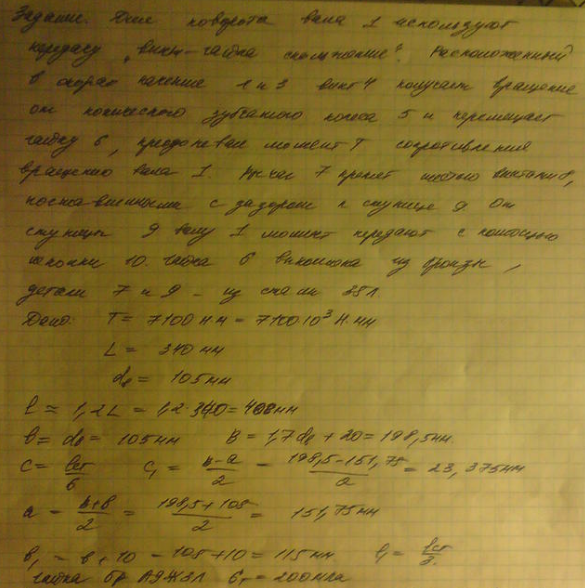 Задание. Для поворота вала 1 используют
передачу "винт-гайка скольжения". Расположенный
в опорах качения 2 и 3 винт 4 получает вращение
от конического зубчатого колеса 5 и перемещает
гайку 6, преодолевая момент T сопротивления
вращению вала 1. Рычаг 7 крепят шестью винтами 8,
поставленными с зазором к ступице 9. От
ступицы 9 валу 1 момент передают с помощью
шпонки 10. Гайка 6 выполнена из бронзы,
детали 7 и 9 - из стали 35Л.
Дано: T = 7100 Н м = 7100 10³ Н·мм
L = 340 мм
dв = 105 мм
l = 1,2L = 1,2 340 = 408 мм
b = dв = 105 мм B = 1,7dв + 20 = 198,5 мм
c = lст/6 c₁ = (B-a)/2 = (198,5-151,75)/2 = 23,375 мм
a = (B+b)/2 = (198,5+105)/2 = 151,75 мм
b₁ = b+10 = 105+10 = 115 мм l₁ = lст/3
Гайка Бр А9Ж3Л σт = 200 МПа